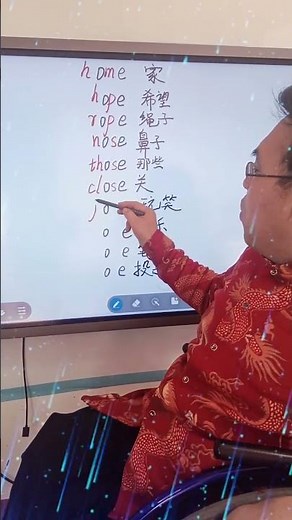 home 家
hope 希望
rope 绳子
nose 鼻子
those 那些
close 关
jo 玩笑
o e 乐
o e
o e 投